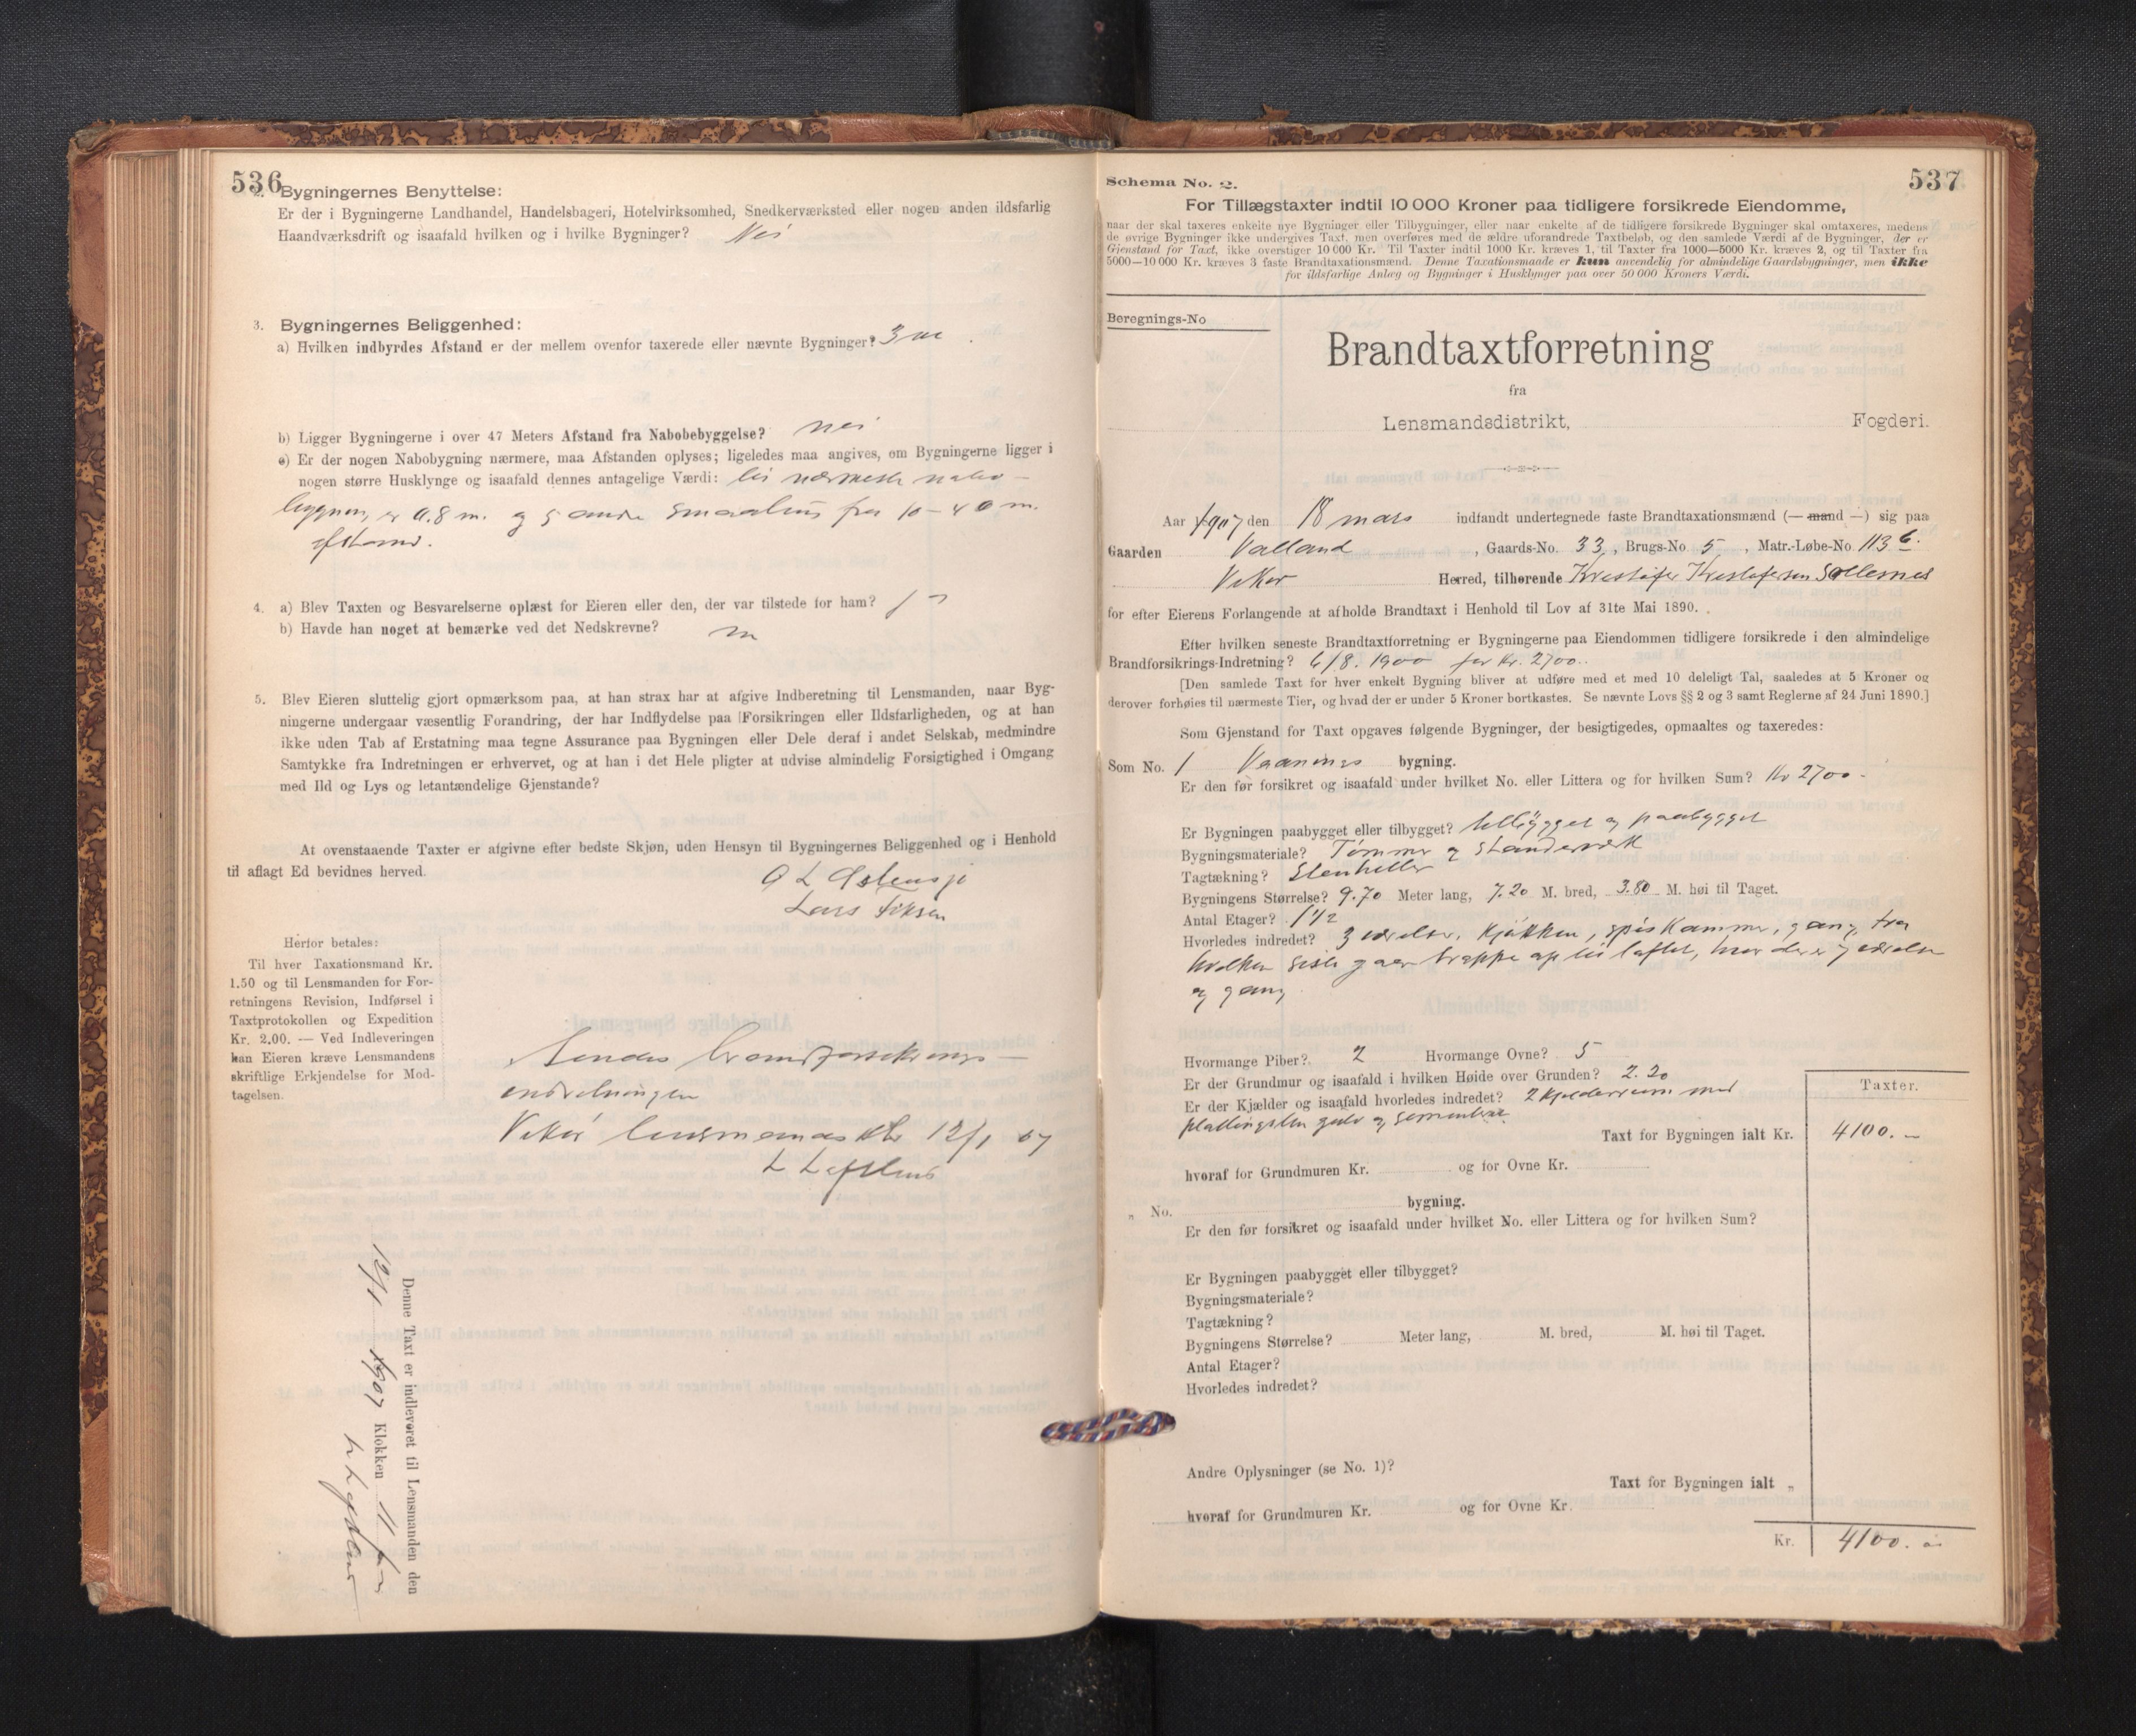 536
2. Bygningernes Benyttelse:
Er der i Bygningerne Landhandel, Handelsbageri, Hotelvirksomhed, Snedkerværksted eller nogen anden ildsfarlig
Haandværksdrift og isaafald hvilken og i hvilke Bygninger? Nei
3. Bygningernes Beliggenhed:
a) Hvilken indbyrdes Afstand er der mellem ovenfor taxerede eller nævnte Bygninger? 3 m
b) Ligger Bygningerne i over 47 Meters Afstand fra Nabobebyggelse? nei
c) Er der nogen Nabobygning nærmere, maa Afstanden oplyses; ligeledes maa angives, om Bygningerne ligger i
nogen større Husklynge og isaafald dennes antagelige Værdi: til nærmeste nabo-
bygning er 0.8 m. og 5 andre smaahus fra 10-40 m.
afstand.
4. a) Blev Taxten og Besvarelserne oplæst for Eieren eller den, der var tilstede for ham? ja
b) Havde han noget at bemærke ved det Nedskrevne?
5. Blev Eieren sluttelig gjort opmærksom paa, at han strax har at afgive Indberetning til Lensmanden, naar Byg-
ningerne undergaar væsentlig Forandring, der har Indflydelse paa Forsikringen eller Ildsfarligheden, og at han
ikke uden Tab af Erstatning maa tegne Assurance paa Bygningen eller Dele deraf i andet Selskab, medmindre
Samtykke fra Indretningen er erhvervet, og at han i det Hele pligter at udvise almindelig Forsigtighed i Omgang
med Ild og Lys og letantændelige Gjenstande?
At ovenstaaende Taxter er afgivne efter bedste Skjøn, uden Hensyn til Bygningernes Beliggenhed og i Henhold
til aflagt Ed bevidnes herved.
O L Østensjø
Lars Fiksen
Herfor betales:
Til hver Taxationsmand Kr.
1.50 og til Lensmanden for For-
retningens Revision, Indførsel i
Taxtprotokollen og Expedition
Kr. 2.00. — Ved Indleveringen
kan Eieren kræve Lensmandens
skriftlige Erkjendelse for Mod-
tagelsen.
Sendes brandforsikrings-
indretningen
Vikør lensmandsktr 12/1 07
L Lofthus
Denne Taxt er indleveret til Lensmanden den
12/1 1907 Klokken 11 fm
L Lofthus
537
Schema No. 2.
For Tillægstaxter indtil 10 000 Kroner paa tidligere forsikrede Eiendomme,
naar der skal taxeres enkelte nye Bygninger eller Tilbygninger, eller naar enkelte af de tidligere forsikrede Bygninger skal omtaxeres, medens
de øvrige Bygninger ikke undergives Taxt, men overføres med de ældre uforandrede Taxtbeløb, og den samlede Værdi af de Bygninger, der er
Gjenstand for Taxt, ikke overstiger 10 000 Kr. Til Taxter indtil 1000 Kr. kræves 1, til Taxter fra 1000—5000 Kr. kræves 2, og til Taxter fra
5000—10 000 Kr. kræves 3 faste Brandtaxationsmænd. Denne Taxationsmaade er kun anvendelig for almindelige Gaardsbygninger, men ikke
for ildsfarlige Anlæg og Bygninger i Husklynger paa over 50 000 Kroners Værdi.
Beregnings-No
Brandtaxtforretning
fra
Lensmandsdistrikt, Fogderi.
Aar 1907 den 18 mars indfandt undertegnede faste Brandtaxationsmænd (— mand —) sig paa
Gaarden Valland, Gaards-No. 33, Brugs-No 5, Matr.-Løbe-No. 113 6.
Vikør Herred, tilhørende Kristofer Kristofersen Sollesnes
for efter Eierens Forlangende at afholde Brandtaxt i Henhold til Lov af 31te Mai 1890.
Efter hvilken seneste Brandtaxtforretning er Bygningerne paa Eiendommen tidligere forsikrede i den almindelige
Brandforsikrings-Indretning? 6/8. 1900 for Kr. 2700.
[Den samlede Taxt for hver enkelt Bygning bliver at udføre med et med 10 deleligt Tal, saaledes at 5 Kroner og
derover forhøies til nærmeste Tier, og hvad der er under 5 Kroner bortkastes. Se nævnte Lovs §§ 2 og 3 samt Reglerne af 24 Juni 1890.]
Som Gjenstand for Taxt opgaves følgende Bygninger, der besigtigedes, opmaaltes og taxeredes:
Som No. 1 Vaanings bygning.
Er den før forsikret og isaafald under hvilket No. eller Littera og for hvilken Sum? Kr 2700.
Er Bygningen paabygget eller tilbygget? tilbygget og paabygget
Bygningsmateriale? Tømmer og standerværk
Tagtækning? Stenheller
Bygningens Størrelse? 9.70 Meter lang, 7.20 M. bred, 3.80 M. høi til Taget.
Antal Etager? 1 1/2
Hvorledes indredet? 3 værelser, kjøkken, spiskammer, gang, fra
hvilken sidste gaar trappe op til loftet, hvor der er 7 værelser
og gang
Hvormange Piber? 2 Hvormange Ovne? 5
Er der Grundmur og isaafald i hvilken Høide over Grunden? 2.20
Er der Kjælder og isaafald hvorledes indredet? 2 kjelderrum med
gulv og
Taxter.
Taxt for Bygningen ialt Kr. 4100.—
hvoraf for Grundmuren Kr. og for Ovne Kr.
„ No. bygning.
Er den før forsikret og isaafald under hvilket No. eller Littera og for hvilken Sum?
Er Bygningen paabygget eller tilbygget?
Bygningsmateriale?
Tagtækning?
Bygningens Størrelse? Meter lang, M. bred, M. høi til Taget.
Antal Etager?
Hvorledes indredet?
Andre Oplysninger (se No. 1)?
Taxt for Bygningen ialt „
hvoraf for Grundmuren Kr. og for Ovne Kr.
Kr. 4100.